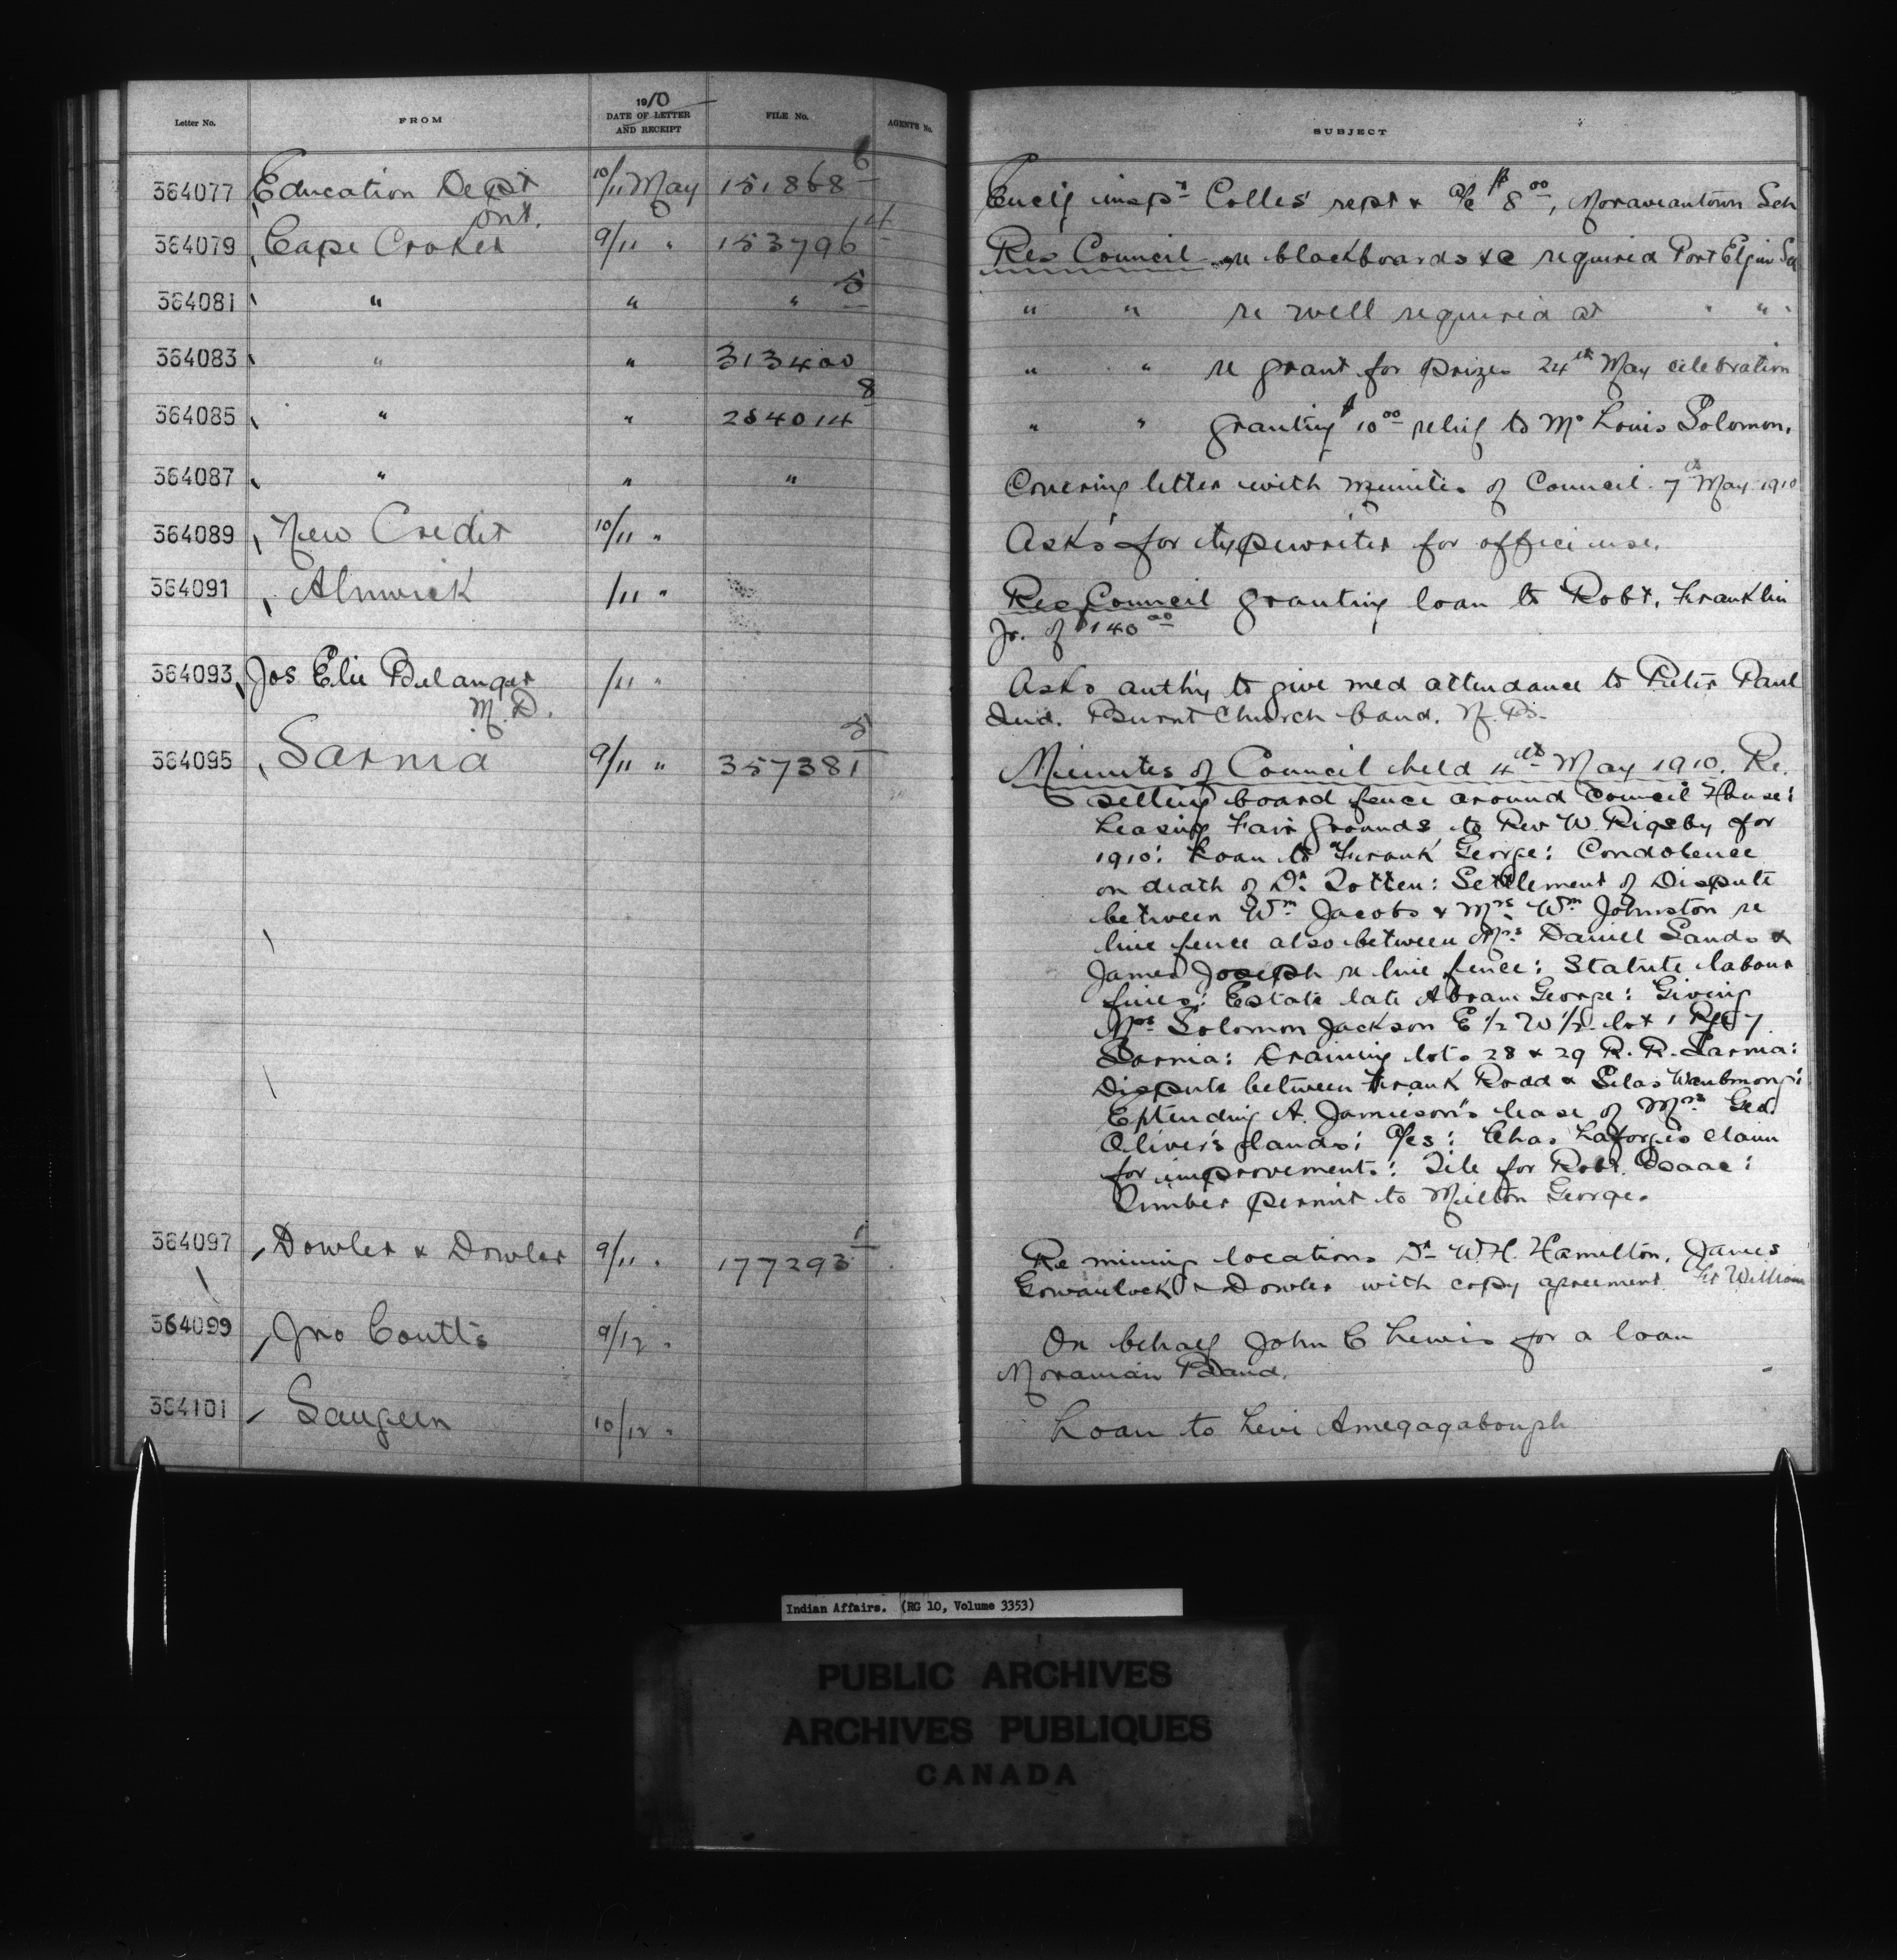 Letter No. FROM 1910 DATE OF LETTER AND RECEIPT FILE No. AGENTS No. SUBJECT
364077 Education Dept Ont. 10/11 May 151868 6 Encl'g insp'r Colles' rept & a/c $8 00, Moraviantown Sch
364079 Cape Croker 9/11 " 153796 14 Res Council re blackboards &c required Port Elgin Sch
364081 " " " 5 " " re well required at " "
364083 " " 313400 " " re grant for prizes 24th May celebration
364085 " " 254014 8 " " granting $10 00 relief to Mrs Louis Solomon.
364087 " " " Covering letter with minutes of Council 7th May 1910
364089 New Credit 10/11 " Asks for typewriter for office use.
364091 Alnwick /11 " Res Council granting loan to Robt. Franklin
Jr. of $140 00
364093 Jos Elie Belanger M.D. /11 " Asks auth'y to give med attendance to Peter Paul
Ind. Burnt Church band. N.B.
364095 Sarnia 9/11 " 357381 5 Minutes of Council held 4th May 1910. Re.
selling board fence around Council House:
Leasing Fair Grounds to Rev W. Rigsby for
1910: Loan to Frank George: Condolence
on death of Dr. Totten: Settlement of Dispute
between Wm Jacobs & Mrs. Wm Johnston re
line fence also between Mrs Daniel Sands &
James Joseph re line fence: Statute labour
fines: Estate late Abram George: Giving
Mrs Solomon Jackson E 1/2 W 1/2 lot 1 Rge 7
Sarnia: Draining lots 28 & 29 R.R. Sarnia:
Dispute between Frank Rodd & Silas Waubmong:
Extending A. Jamieson's lease of Mrs Geo.
Oliver's lands: a/cs: Chas Laforges claim
for improvements: Tile for Robt. Isaac:
Timber permit to Milton George.
364097 Dowler & Dowler 9/11 " 177293 1 Re mining locations Dr W.H. Hamilton, James
Gowanlock & Dowler with copy agreement Ft William
364099 Jno Coutts 9/12 " On behalf John C Lewis for a loan
Moravian Band.
364101 Saugeen 10/12 " Loan to Levi Amegagabough
Indian Affairs. (RG 10, Volume 3353)
PUBLIC ARCHIVES
ARCHIVES PUBLIQUES
CANADA